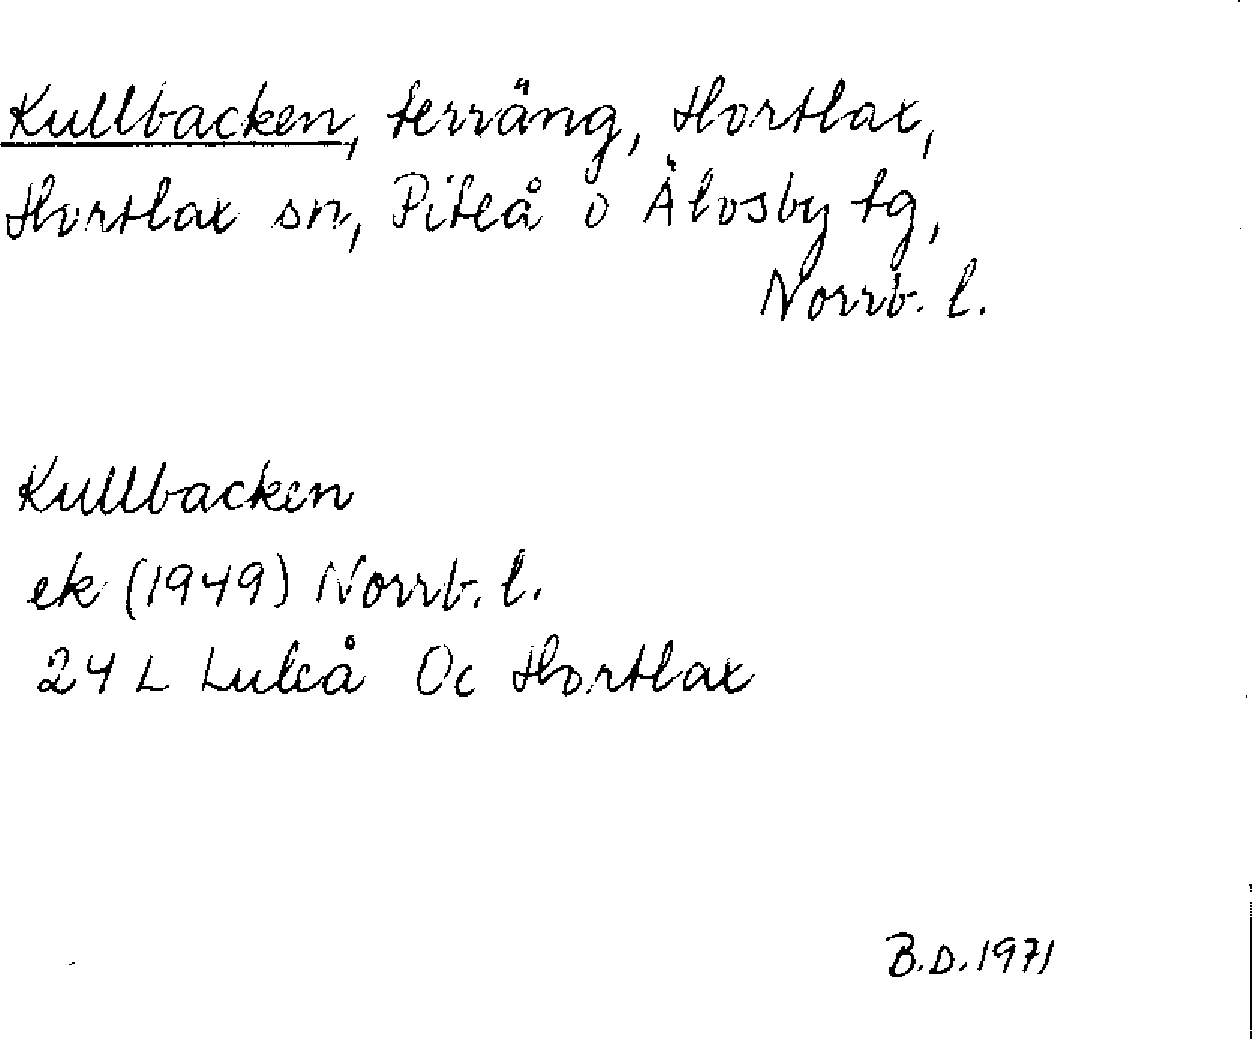 Kullbacken, terräng, Hortlax,
Hortlax sn, Piteå o Älvsby tg,
Norrb. l.
Kullbacken
ek (1949) Norrb. l.
24 L Luleå Oc Hortlax
B.D. 1971